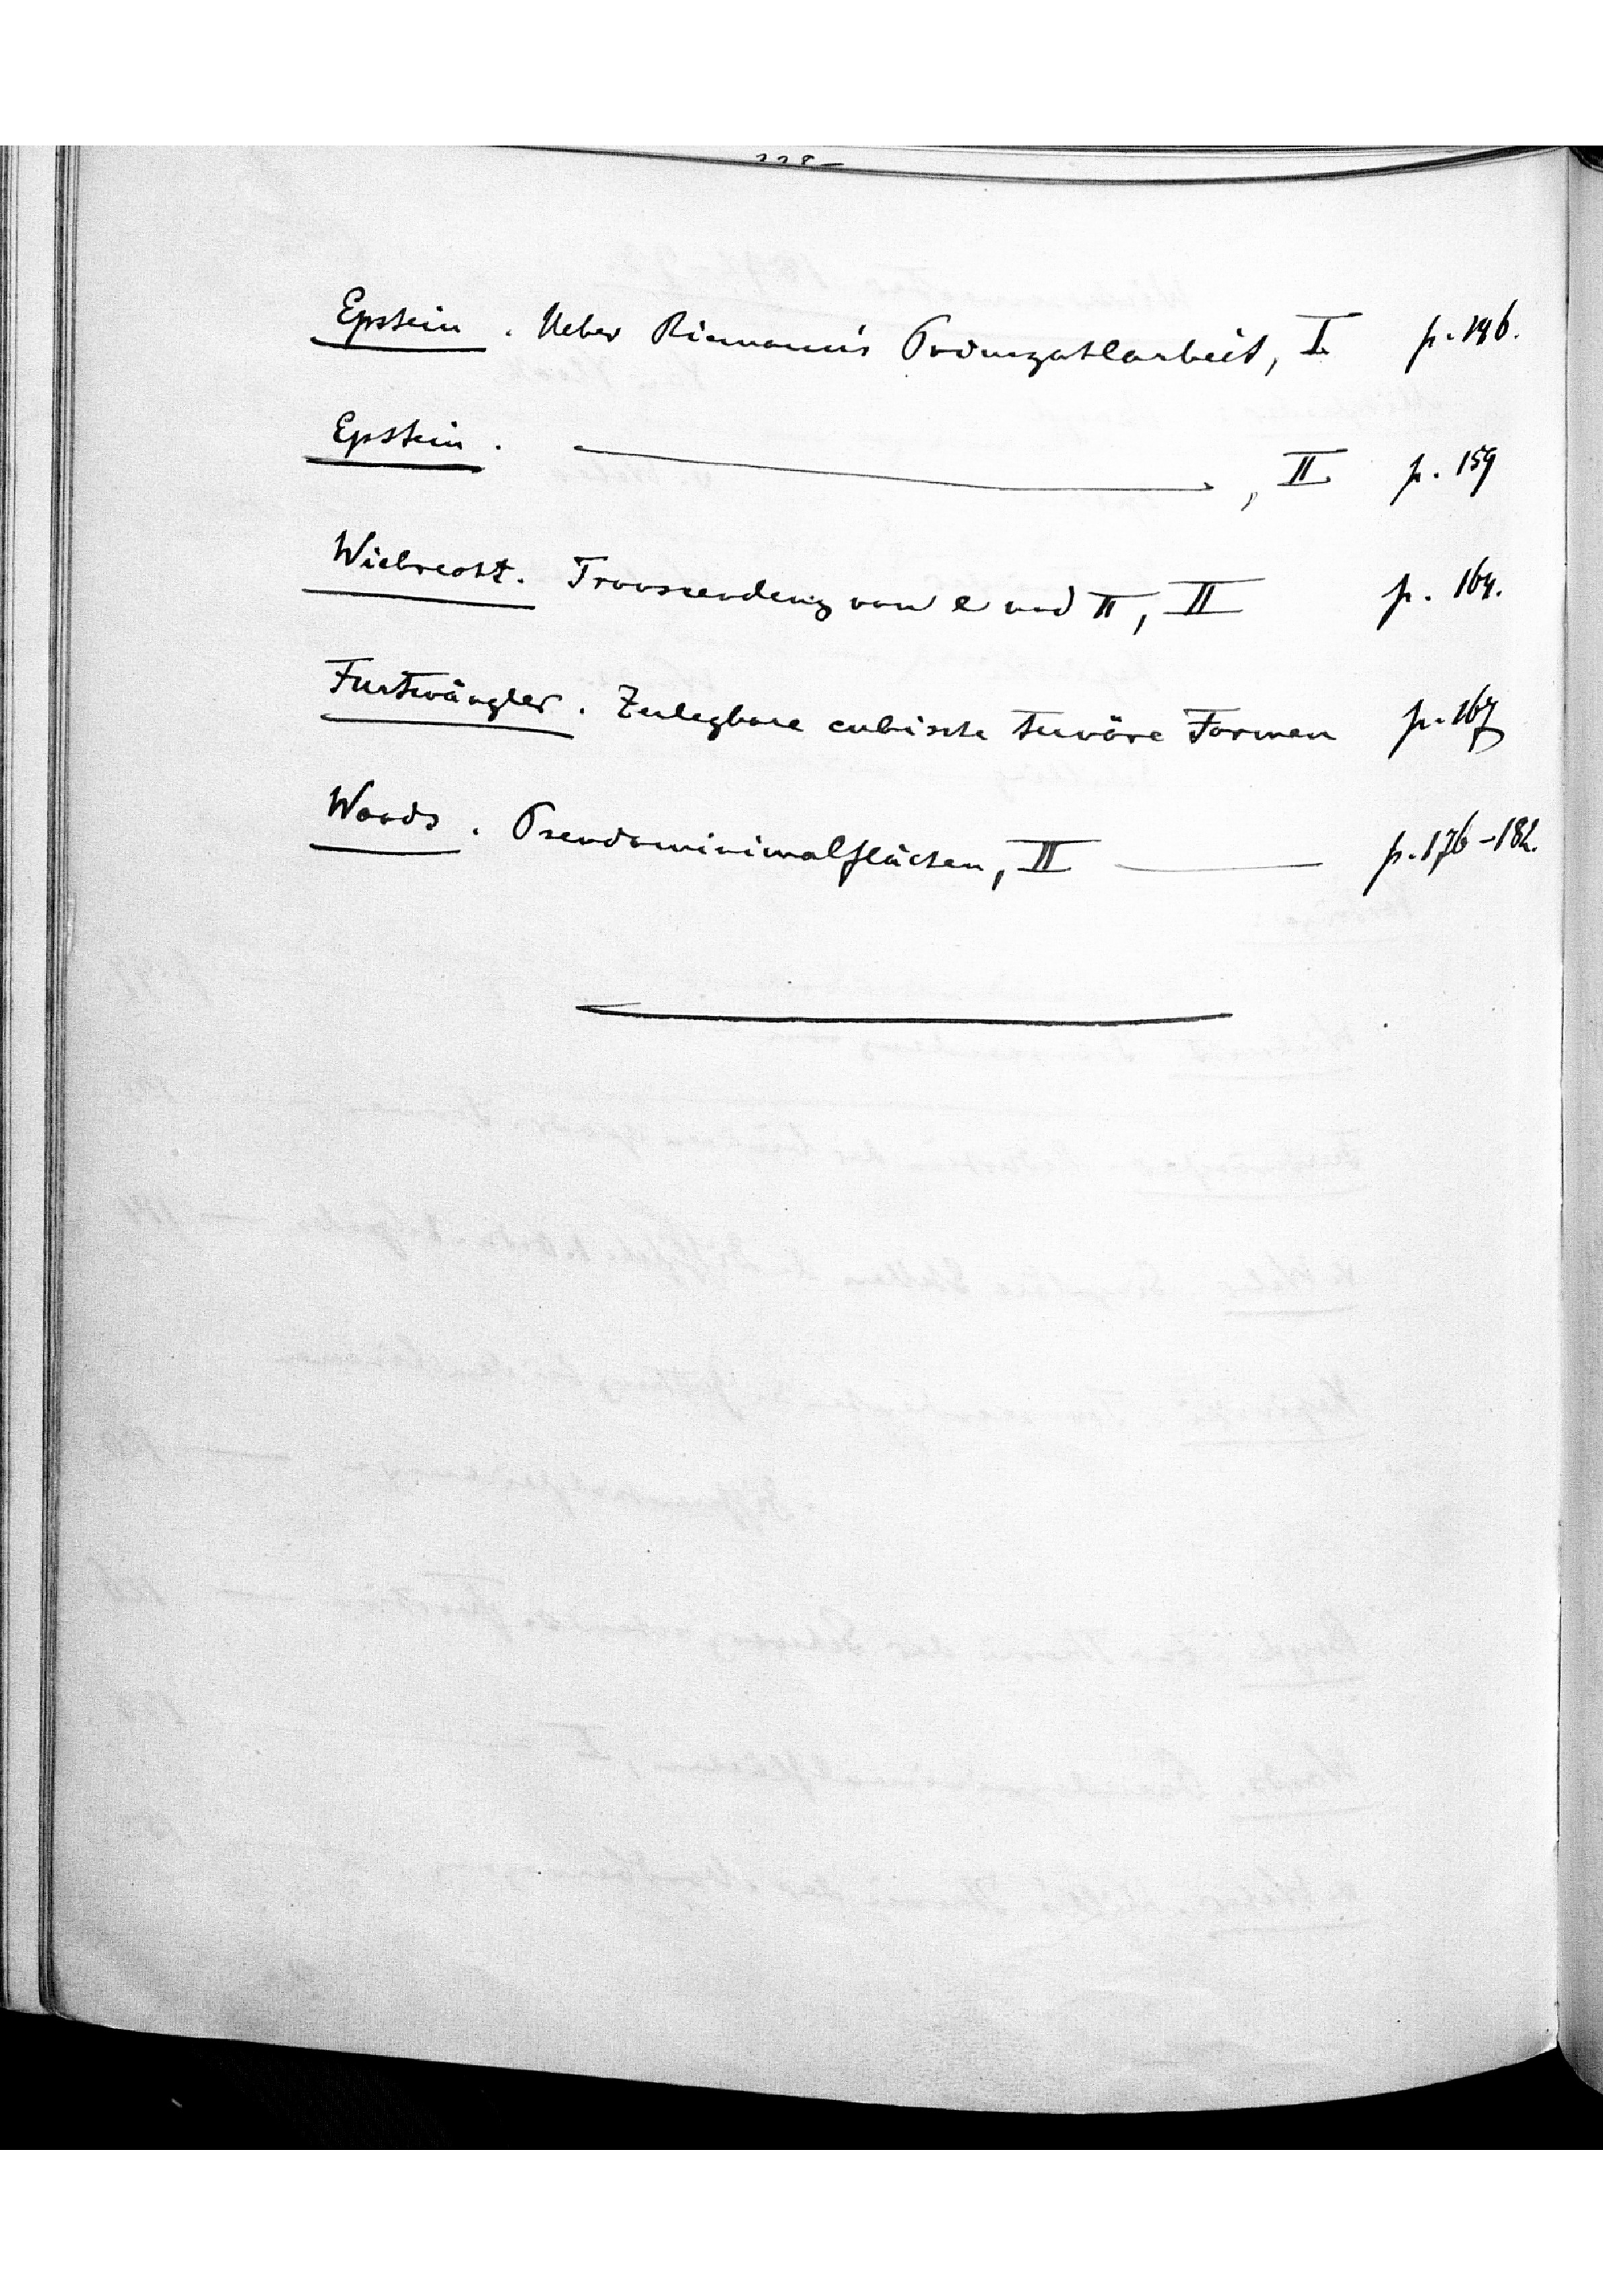 Epstein. Ueber Riemann's Primzahlarbeit, I p. 146.
Epstein. ————, II p. 159
Wiebrecht. Transcendenz von e und π, II p. 164.
Furtwängler. Zerlegbare cubische ternäre Formen p. 167
Woods. Pseudominimalflächen, II —— p. 176-182.